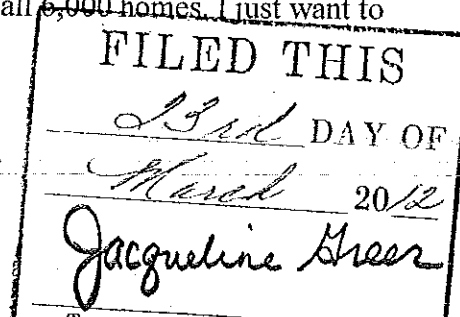 all 6,000 homes. I just want to
FILED THIS
23rd DAY OF
March 2012
Jacqueline Green